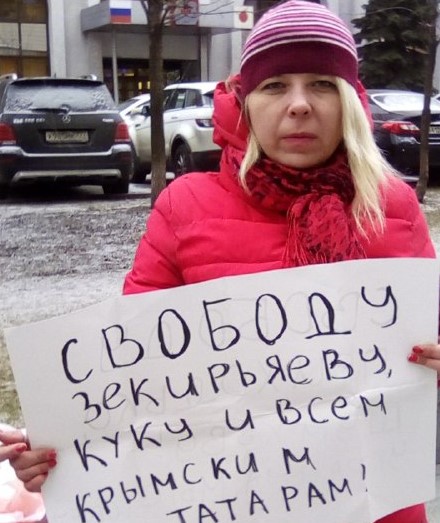 СВОБОДУ
ЗЕКИРЬЯЕВУ,
КУКУ И ВСЕМ
КРЫМСКИМ
ТАТАРАМ!